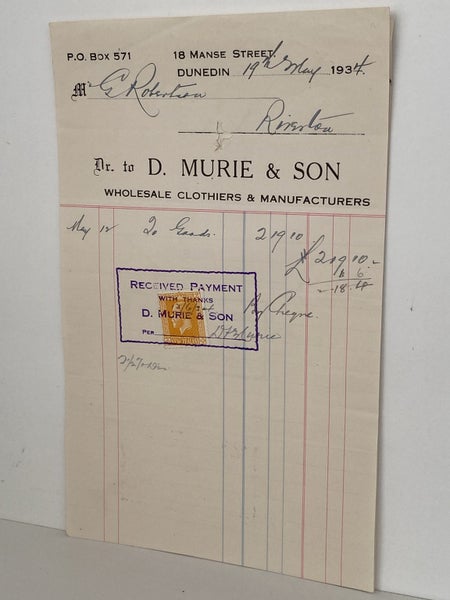 P.O. BOX 571
18 MANSE STREET,
DUNEDIN 19th May 1934.
Mr G Robertson
Riverton
Dr. to D. MURIE & SON
WHOLESALE CLOTHIERS & MANUFACTURERS
May 12 To Goods 2 19 10
£ 2 19 10
1 6
2 18 4
RECEIVED PAYMENT
WITH THANKS
D. MURIE & SON
PER
By Cheque.